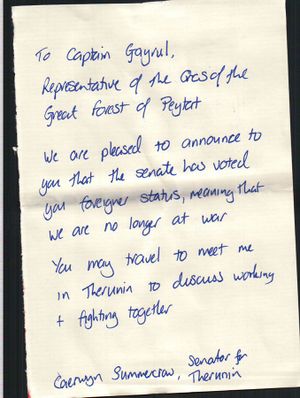 To Captain Gaynul,
Representative of the Orcs of the
Great Forest of Peytart
We are pleased to announce to
you that the senate has voted
you foreigner status, meaning that
we are no longer at war
You may travel to meet me
in Therunin to discuss working
+ fighting together
Caerwyn Summercrow, Senator for
Therunin